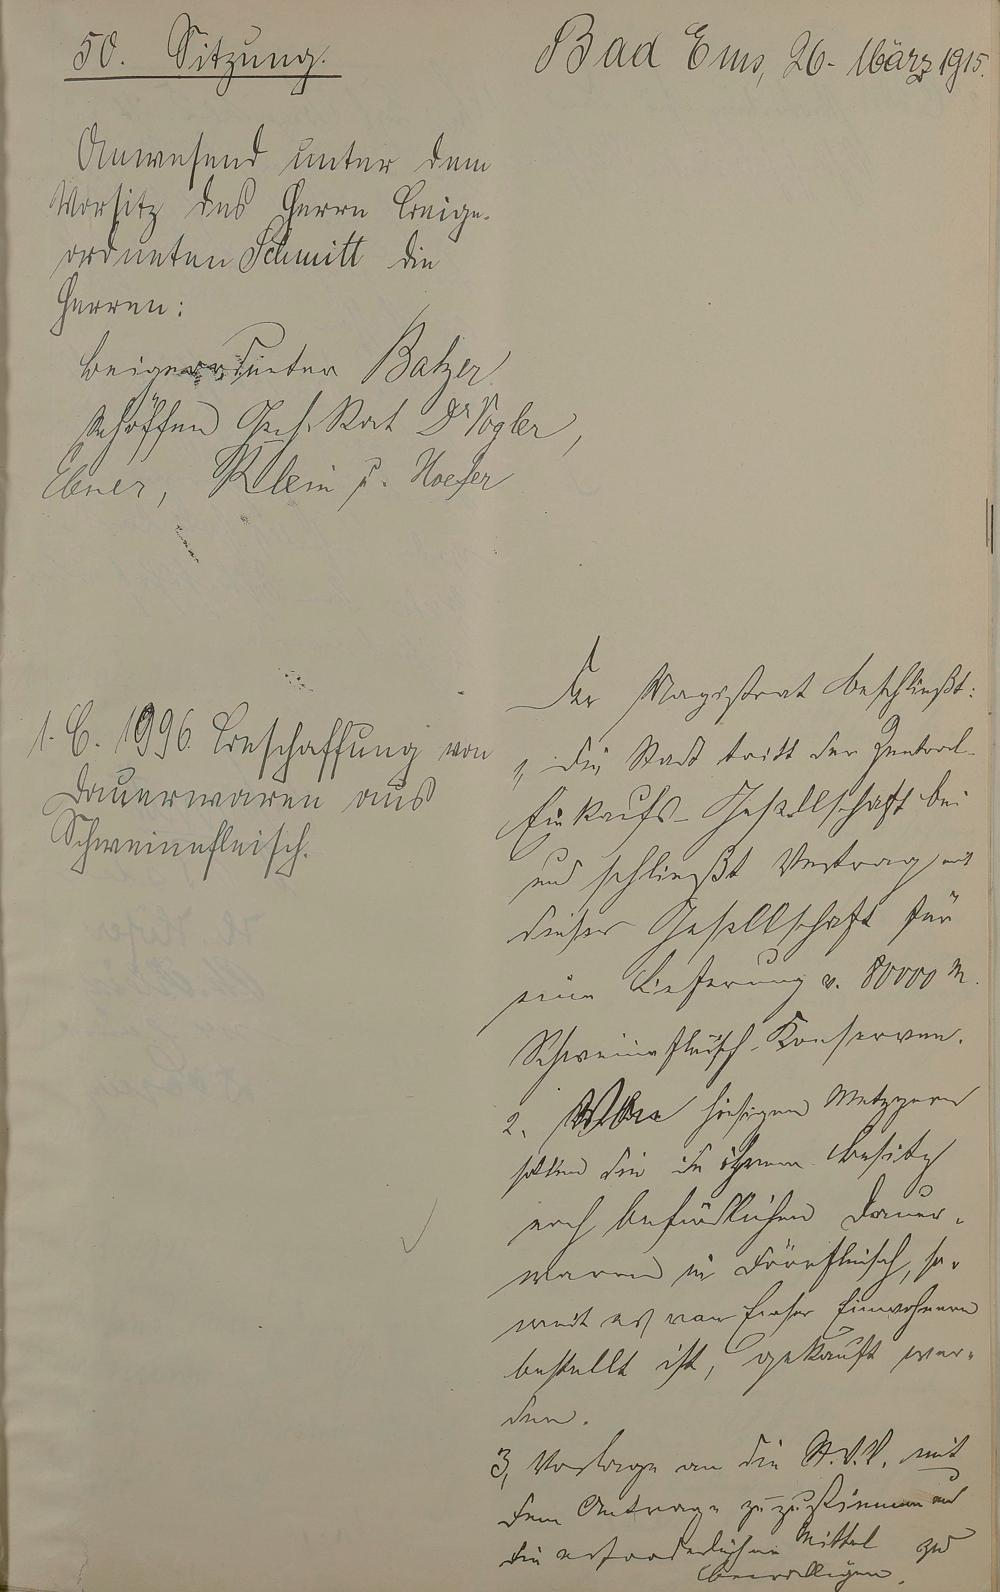 50. Sitzung.
Bad Ems, 26. März 1915.
Anwesend unter dem
Vorsitz des Herrn Beige-
ordneten Schmitt die
Herren:
Beigeordneter Balzer
Schöffen Geh. Rat Dr Vogler,
Ebner, Klein u. Hoefer
1. C. 1996. Beschaffung von
Dauerwaren aus
Schweinefleisch.
Der Magistrat beschließt:
1, die Stadt tritt der Zentral-
Einkaufs-Gesellschaft bei
und schließt Vertrag mit
dieser Gesellschaft für
eine Lieferung v. 80000 M.
Schweinefleisch-Konserven.
2. hiesigen Metzgern
sollen die in ihrem Besitz
noch befindlichen Dauer-
waren in Dörrfleisch, so-
weit es von Emser Einwohnern
bestellt ist, gekauft wer-
den.
3, Vorlage an die St.V.V. mit
dem Antrage zuzustimmen und
die erforderlichen Mittel zu
bewilligen.